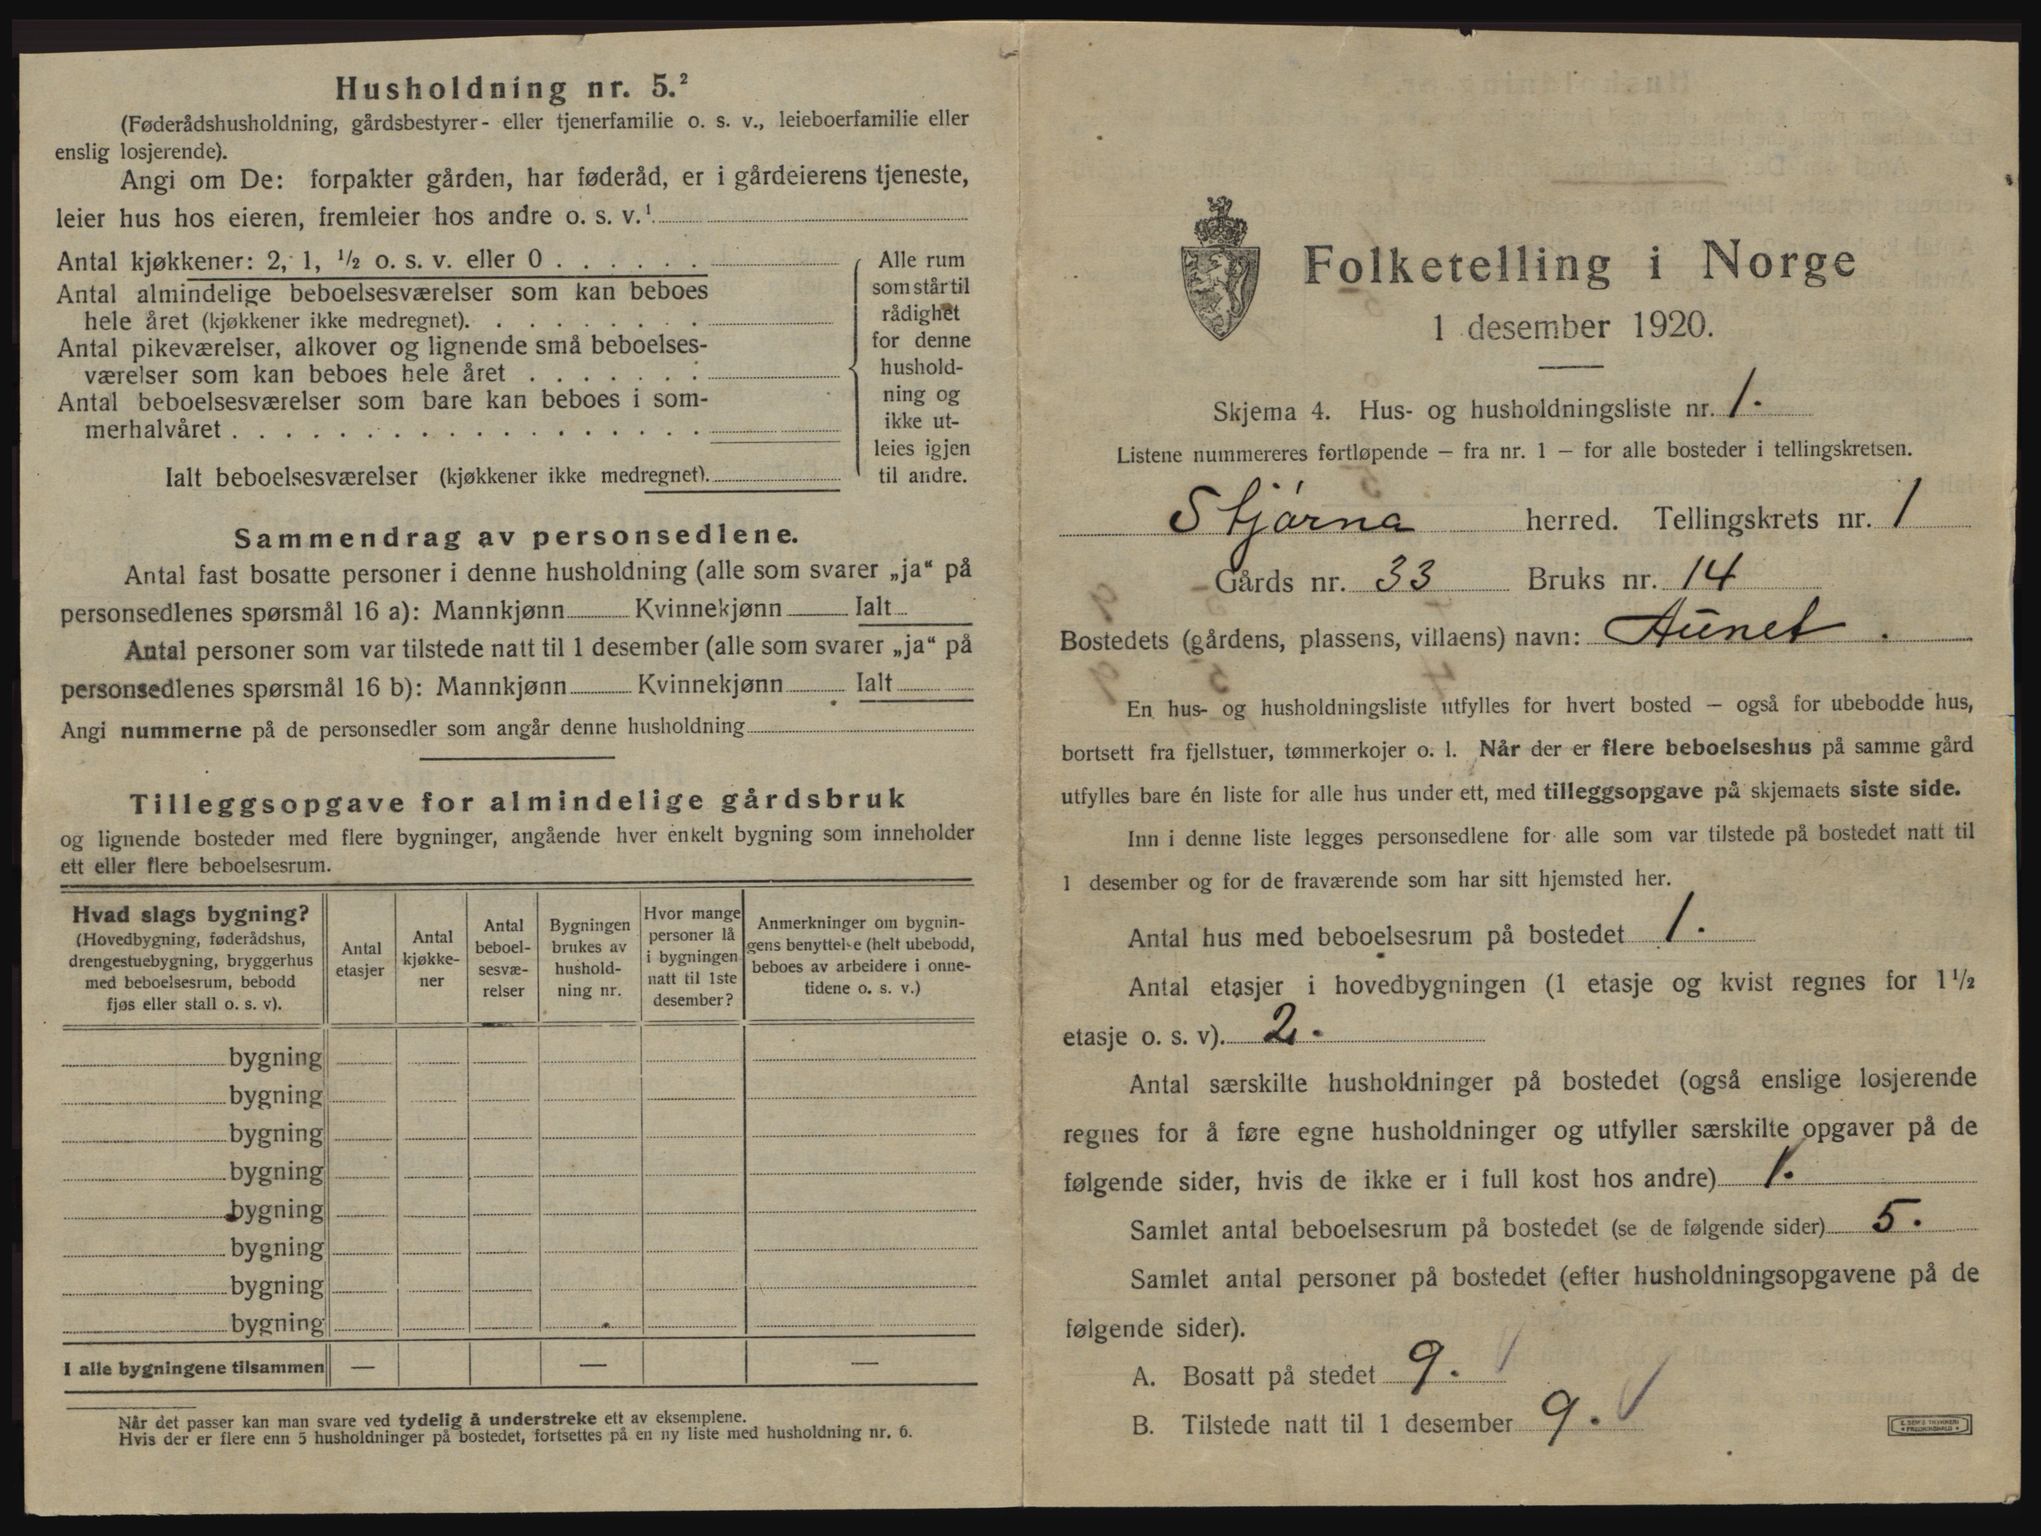 Husholdning nr. 5.²
(Føderådshusholdning, gårdsbestyrer- eller tjenerfamilie o. s. v., leieboerfamilie eller
enslig losjerende).
Angi om De: forpakter gården, har føderåd, er i gårdeierens tjeneste,
leier hus hos eieren, fremleier hos andre o. s. v.¹
Antal kjøkkener: 2, 1, ½ o. s. v. eller 0 . . . . . .
Antal almindelige beboelsesværelser som kan beboes
hele året (kjøkkener ikke medregnet). . . . . . . . .
Antal pikeværelser, alkover og lignende små beboelses-
værelser som kan beboes hele året . . . . . . .
Antal beboelsesværelser som bare kan beboes i som-
merhalvåret . . . . . . . . . . . . . . . . . .
Ialt beboelsesværelser (kjøkkener ikke medregnet).
Alle rum
som står til
rådighet
for denne
hushold-
ning og
ikke ut-
leies igjen
til andre.
Sammendrag av personsedlene.
Antal fast bosatte personer i denne husholdning (alle som svarer „ja“ på
personsedlenes spørsmål 16 a): Mannkjønn Kvinnekjønn Ialt
Antal personer som var tilstede natt til 1 desember (alle som svarer „ja“ på
personsedlenes spørsmål 16 b): Mannkjønn Kvinnekjønn Ialt
Angi nummerne på de personsedler som angår denne husholdning
Tilleggsopgave for almindelige gårdsbruk
og lignende bosteder med flere bygninger, angående hver enkelt bygning som inneholder
ett eller flere beboelsesrum.
Hvad slags bygning?
(Hovedbygning, føderådshus,
drengestuebygning, bryggerhus
med beboelsesrum, bebodd
fjøs eller stall o. s. v).
Antal
etasjer
Antal
kjøkke-
ner
Antal
beboel-
sesvæ-
relser
Bygningen
brukes av
hushold-
ning nr.
Hvor mange
personer lå
i bygningen
natt til 1ste
desember?
Anmerkninger om bygnin-
gens benyttelse (helt ubebodd,
beboes av arbeidere i onne-
tidene o. s. v.)
bygning
bygning
bygning
bygning
bygning
bygning
bygning
bygning
I alle bygningene tilsammen — — —
Når det passer kan man svare ved tydelig å understreke ett av eksemplene.
Hvis der er flere enn 5 husholdninger på bostedet, fortsettes på en ny liste med husholdning nr. 6.
Folketelling i Norge
1 desember 1920.
Skjema 4. Hus- og husholdningsliste nr. 1.
Listene nummereres fortløpende – fra nr. 1 – for alle bosteder i tellingskretsen.
Stjørna herred. Tellingskrets nr. 1
Gårds nr. 33 Bruks nr. 14
Bostedets (gårdens, plassens, villaens) navn: Aunet.
En hus- og husholdningsliste utfylles for hvert bosted – også for ubebodde hus,
bortsett fra fjellstuer, tømmerkojer o. l. Når der er flere beboelseshus på samme gård
utfylles bare én liste for alle hus under ett, med tilleggsopgave på skjemaets siste side.
Inn i denne liste legges personsedlene for alle som var tilstede på bostedet natt til
1 desember og for de fraværende som har sitt hjemsted her.
Antal hus med beboelsesrum på bostedet 1.
Antal etasjer i hovedbygningen (1 etasje og kvist regnes for 1½
etasje o. s. v). 2.
Antal særskilte husholdninger på bostedet (også enslige losjerende
regnes for å føre egne husholdninger og utfyller særskilte opgaver på de
følgende sider, hvis de ikke er i full kost hos andre) 1.
Samlet antal beboelsesrum på bostedet (se de følgende sider) 5.
Samlet antal personer på bostedet (efter husholdningsopgavene på de
følgende sider).
A. Bosatt på stedet 9.
B. Tilstede natt til 1 desember 9.